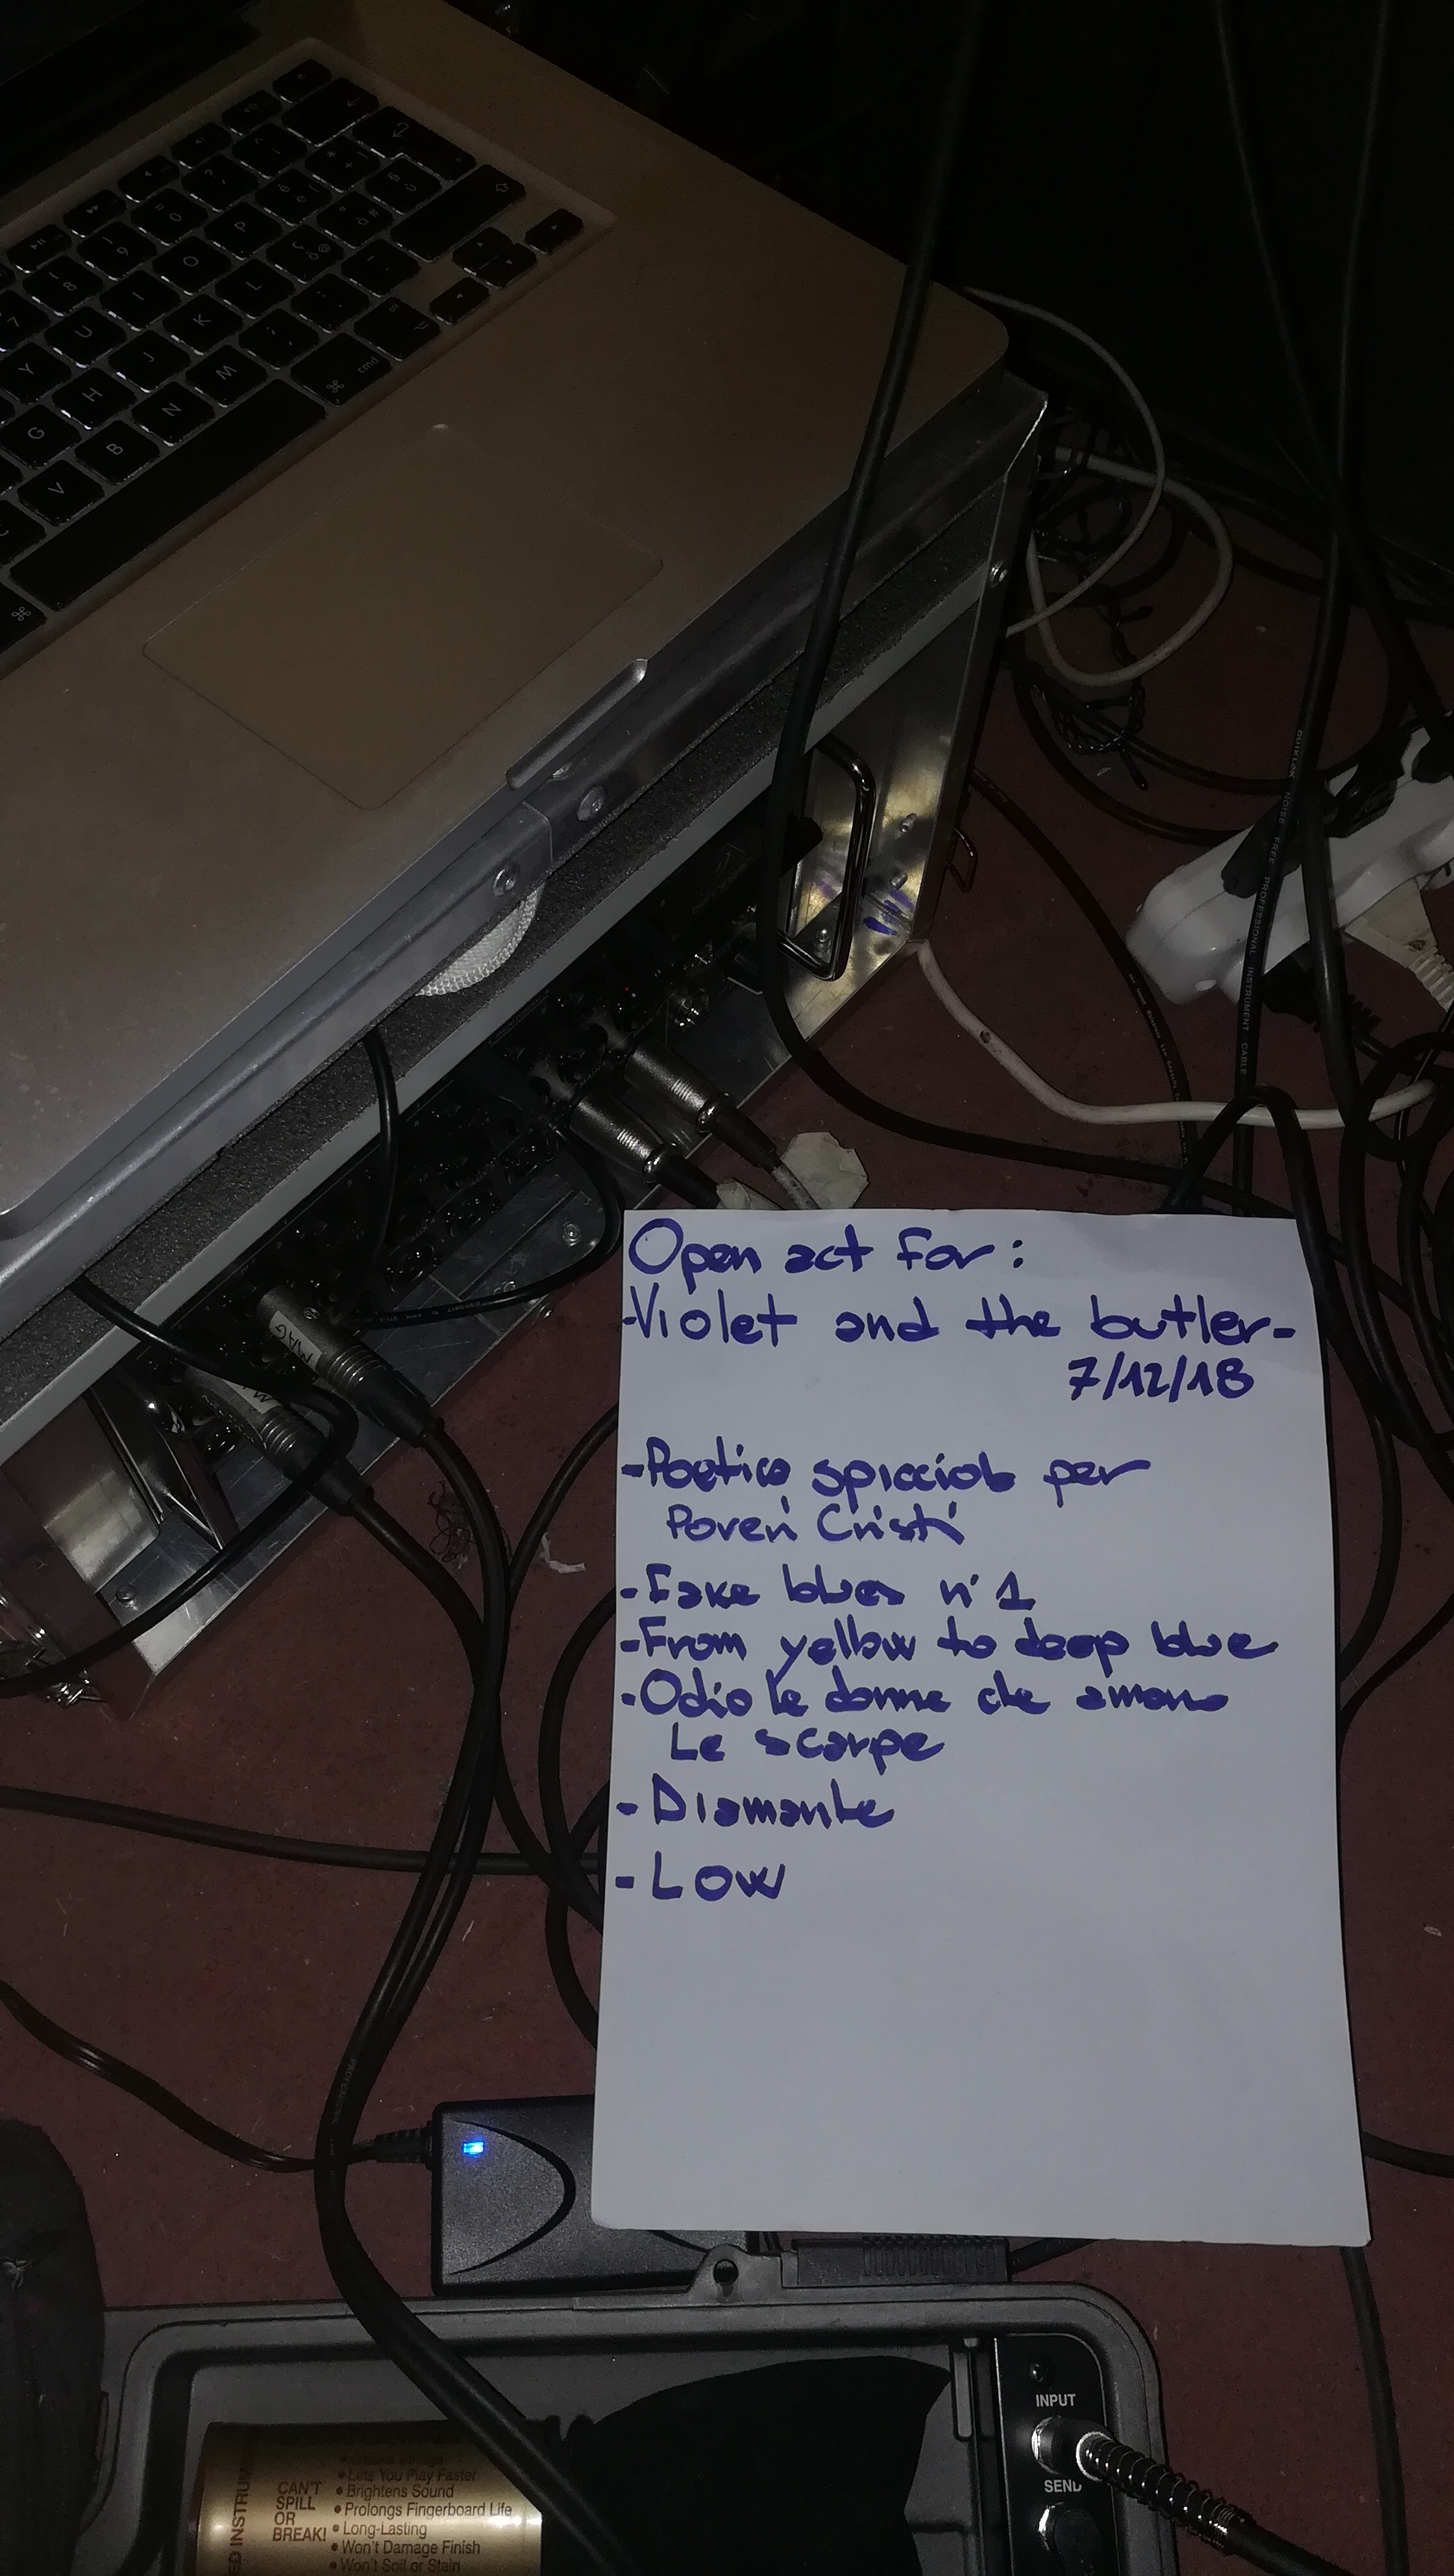 Open act for:
-Violet and the butler-
7/12/18
-Poetica spicciola per
Poveri Cristi
-Fake blues n°1
-From yellow to deep blue
-Odio le donne che amano
Le scarpe
-Diamante
-Low
QUIKLOK NOISE FREE PROFESSIONAL INSTRUMENT CABLE
cmd
INPUT
SEND
CAN'T
SPILL
OR
BREAK!
• Lets You Play Faster
• Brightens Sound
• Prolongs Fingerboard Life
• Long-Lasting
• Won't Damage Finish
• Won't Soil or Stain